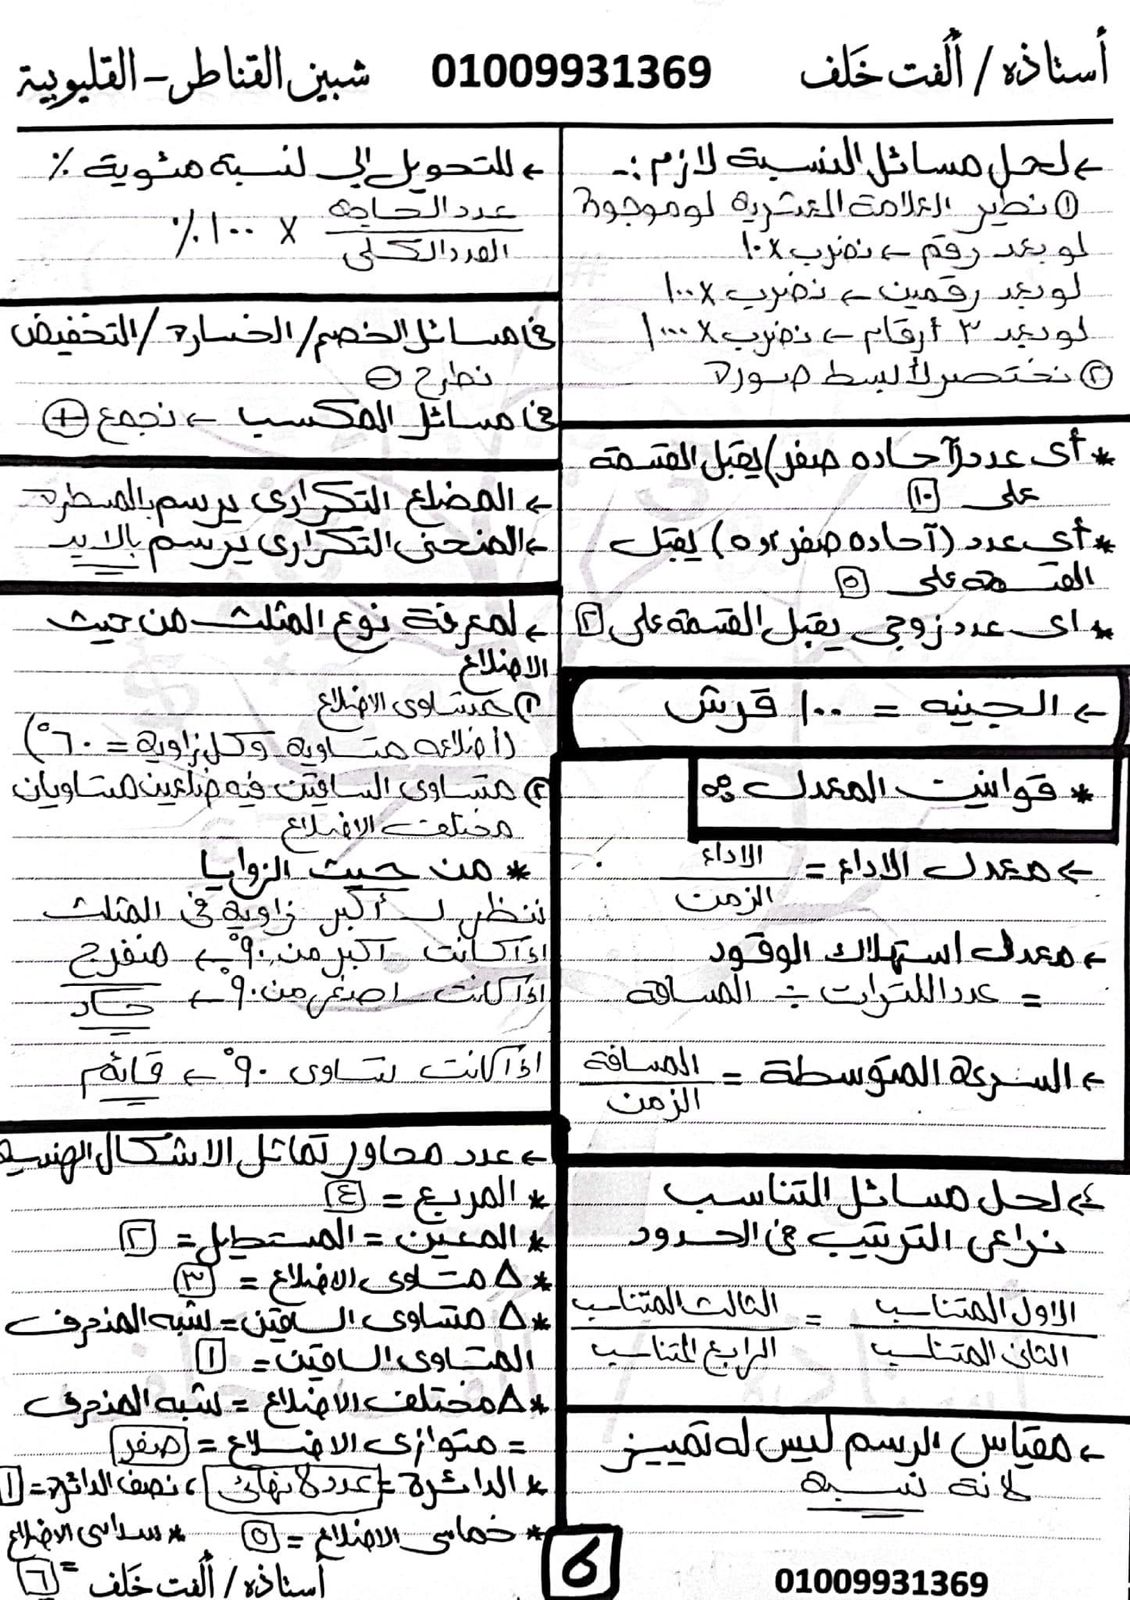 أستاذه / ألفت خلف 01009931369 شبين القناطر - القليوبية
← لحل مسائل النسبة لازم :-
① نطير العلامة العشرية لو موجودة
لو بعد رقم ← نضرب × ١٠
لو بعد رقمين ← نضرب × ١٠٠
لو بعد ٣ أرقام ← نضرب × ١٠٠٠
② نختصر لأبسط صورة
* أى عدد (آحاده صفر) يقبل القسمة
على ١٠
* أى عدد (آحاده صفر، ٥) يقبل
القسمة على ٥
* اى عدد زوجى يقبل القسمة على ٢
← الجنيه = ١٠٠ قرش
* قوانين المعدل
← معدل الاداء = الاداء
الزمن
← معدل استهلاك الوقود
= عدد اللترات ÷ المسافة
← السرعة المتوسطة = المسافة
الزمن
← لحل مسائل التناسب
نراعى الترتيب فى الحدود
الاول المتناسب = الثالث المتناسب
الثانى المتناسب الرابع المتناسب
← مقياس الرسم ليس له تمييز
لانة نسبة
← للتحويل الى نسبة مئوية %
عدد الحاجه × ١٠٠ %
العدد الكلى
فى مسائل الخصم / الخسارة / التخفيض
نطرح ⊖
فى مسائل المكسب ← نجمع ⊕
← المضلع التكرارى يرسم بالمسطرة
← المنحنى التكرارى يرسم بالايد
← لمعرفة نوع المثلث من حيث
الاضلاع
① متساوى الاضلاع
(أضلاعه متساوية وكل زاوية = ٦٠°)
② متساوى الساقين فيه ضلعين متساويان
مختلف الاضلاع
* من حيث الزوايا
ننظر لـ أكبر زاوية فى المثلث
اذا كانت اكبر من ٩٠° ← منفرج
اذا كانت اصغر من ٩٠° ← حاد
اذا كانت تساوى ٩٠° ← قائم
← عدد محاور تماثل الاشكال الهندسية
* المربع = ٤
* المعين = المستطيل = ٢
* Δ متساوى الاضلاع = ٣
* Δ متساوى الساقين = شبه المنحرف
المتساوى الساقين = ١
* Δ مختلف الاضلاع = شبه المنحرف
= متوازى الاضلاع = صفر
* الدائرة = عدد لا نهائى ، نصف الدائرة = ١
* خماسى الاضلاع = ٥ * سداسى الاضلاع
= ٦
أستاذه / ألفت خلف 6 01009931369